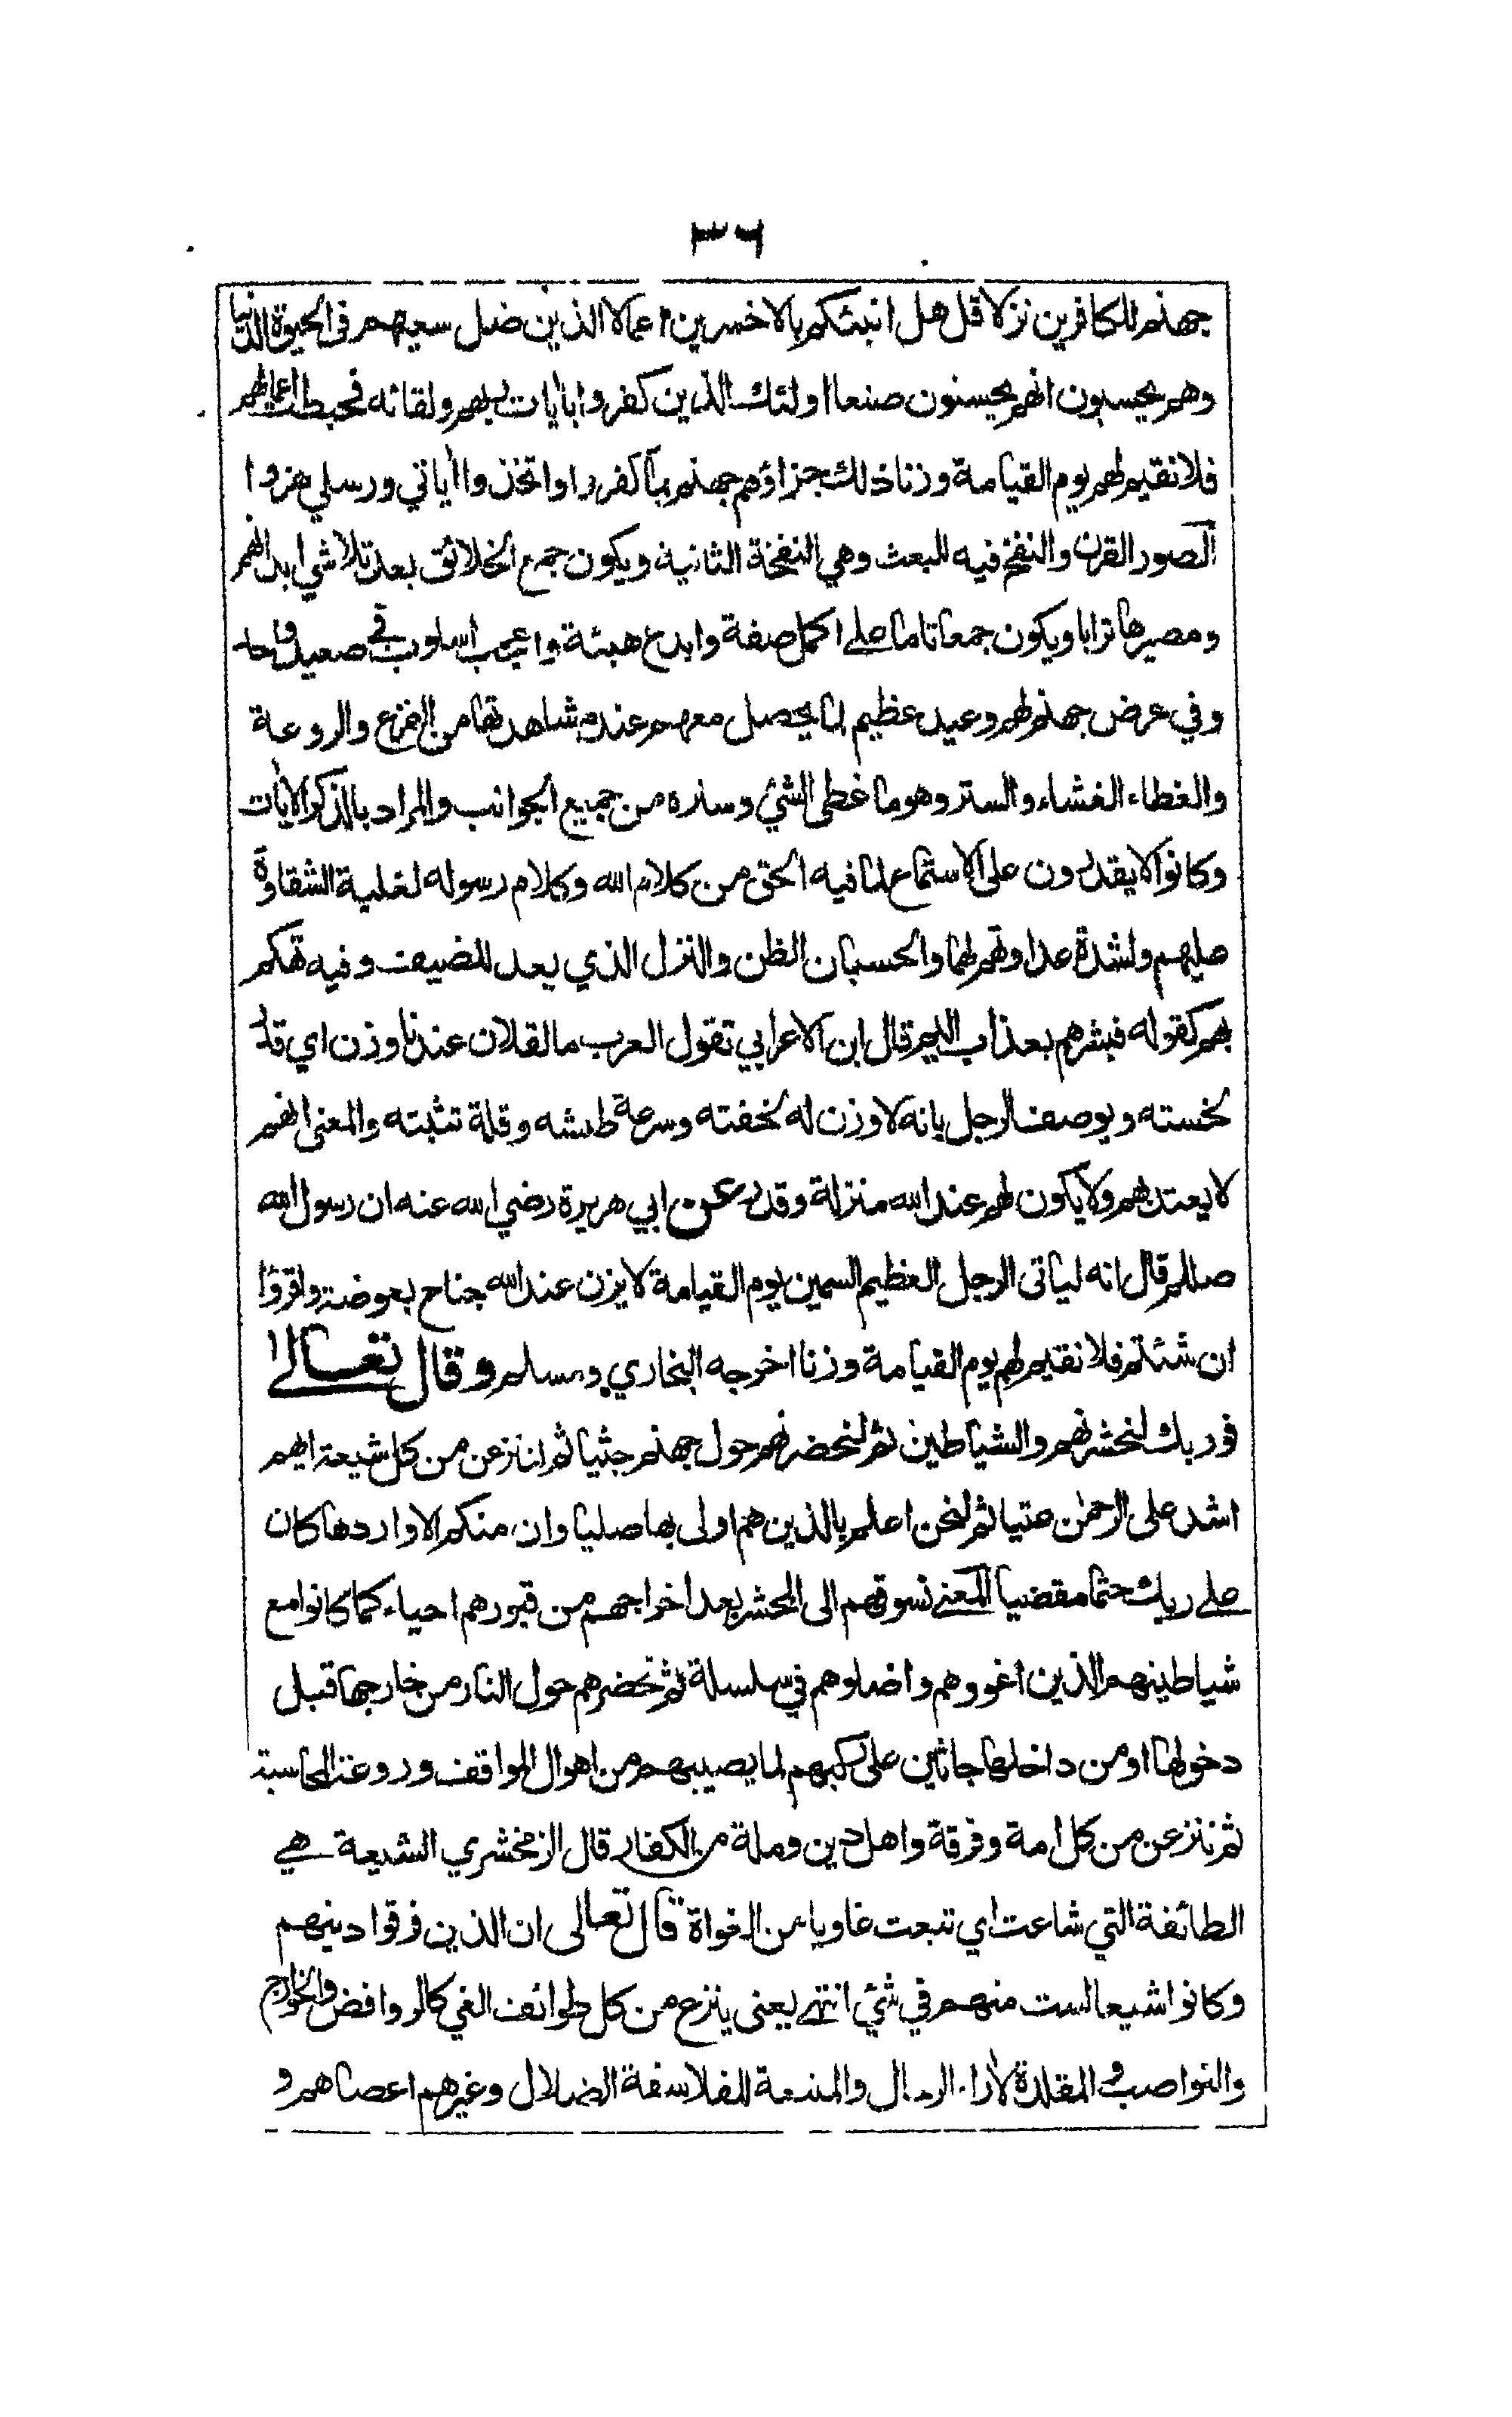 ٣٦
جهنم للكافرين نزلا قل هل انبئكم بالاخسرين اعمالا الذين ضل سعيهم فى الحيوة الدنيا
وهم يحسبون انهم يحسنون صنعا اولئك الذين كفروا بايات ربهم ولقائه فحبطت اعمالهم
فلا نقيم لهم يوم القيامة وزنا ذلك جزاؤهم جهنم بما كفروا واتخذوا اياتي ورسلي هزوا
الصور القرن والنفخ فيه للبعث وهي النفخة الثانية ويكون جمع الخلائق بعد تلاشي ابدانهم
ومصيرها ترابا ويكون جمعا تاما على اكمل صفة وابدع هيئة واعجب اسلوب في صعيد واحد
وفي عرض جهنم لهم وعيد عظيم لما يحصل معهم عند مشاهدتها من الفزع والروعة
والغطاء الغشاء والستر وهو ما غطى الشئ وستره من جميع الجوانب والمراد بالذكر الايات
وكانوا لا يقدرون على الاستماع لما فيه الحق من كلام الله وكلام رسوله لغلبة الشقاوة
عليهم ولشدة عداوتهم لهما والحسبان الظن والنزل الذي يعد للضيف وفيه تهكم
بهم كقوله فبشرهم بعذاب اليم قال ابن الاعرابي تقول العرب ما لفلان عندنا وزن اي قدر
لخسته ويوصف الرجل بانه لا وزن له لخفته وسرعة طيشه وقلة تثبته والمعنى انهم
لا يعتد بهم ولا يكون لهم عند الله منزلة وقدر عن ابي هريرة رضي الله عنه ان رسول الله
صللم قال انه لياتى الرجل العظيم السمين يوم القيامة لا يزن عند الله جناح بعوضة واقرؤا
ان شئتم فلا نقيم لهم يوم القيامة وزنا اخرجه البخاري ومسلم وقال تعالى
فوربك لنحشرنهم والشياطين ثم لنحضرنهم حول جهنم جثيا ثم لننزعن من كل شيعة ايهم
اشد على الرحمن عتيا ثم لنحن اعلم بالذين هم اولى بها صليا وان منكم الا واردها كان
على ربك حتما مقضيا المعنى نسوقهم الى المحشر بعد اخراجهم من قبورهم احياء كما كانوا مع
شياطينهم الذين اغووهم واضلوهم في سلسلة ثم تحضرهم حول النار من خارجها قبل
دخولها او من داخلها جاثين على ركبهم لما يصيبهم من اهوال المواقف وروعة المحاسبة
ثم ننزعن من كل امة وفرقة واهل دين وملة من الكفار قال الزمخشري الشيعة هي
الطائفة التي شاعت اي تبعت غاويا من الغواة قال تعالى ان الذين فرقوا دينهم
وكانوا شيعا لست منهم في شئ انتهى يعنى ينزع من كل طوائف الغي كالروافض والخوارج
والنواصب والمقلدة لآراء الرجال والمتبعة للفلاسفة الضلال وغيرهم اعصاهم و